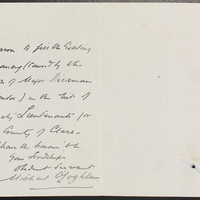 person to fill the existing
vacancy (caused by the
of Major Hickman
) in the list of
Deputy Lieutenants for
County of Clare.
I have the honour to be
Your Lordships
Obdnt Servant
Michael O'Loghlen